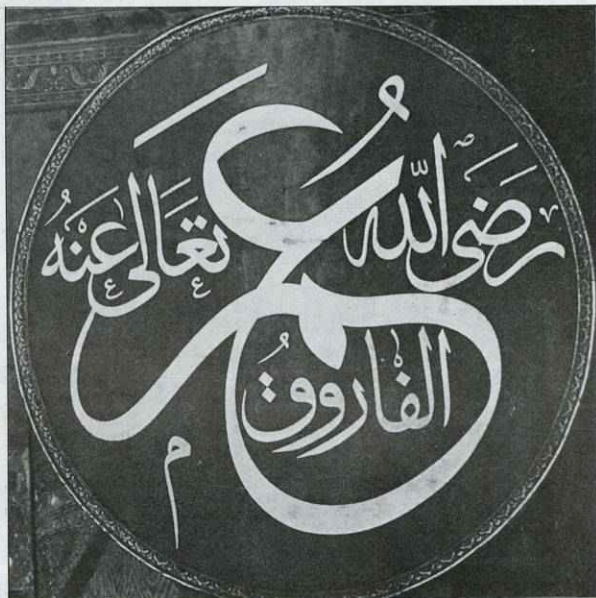 عُمَرُ
الفاروق
رَضَى اللّٰه تَعَالٰى عَنْهُ